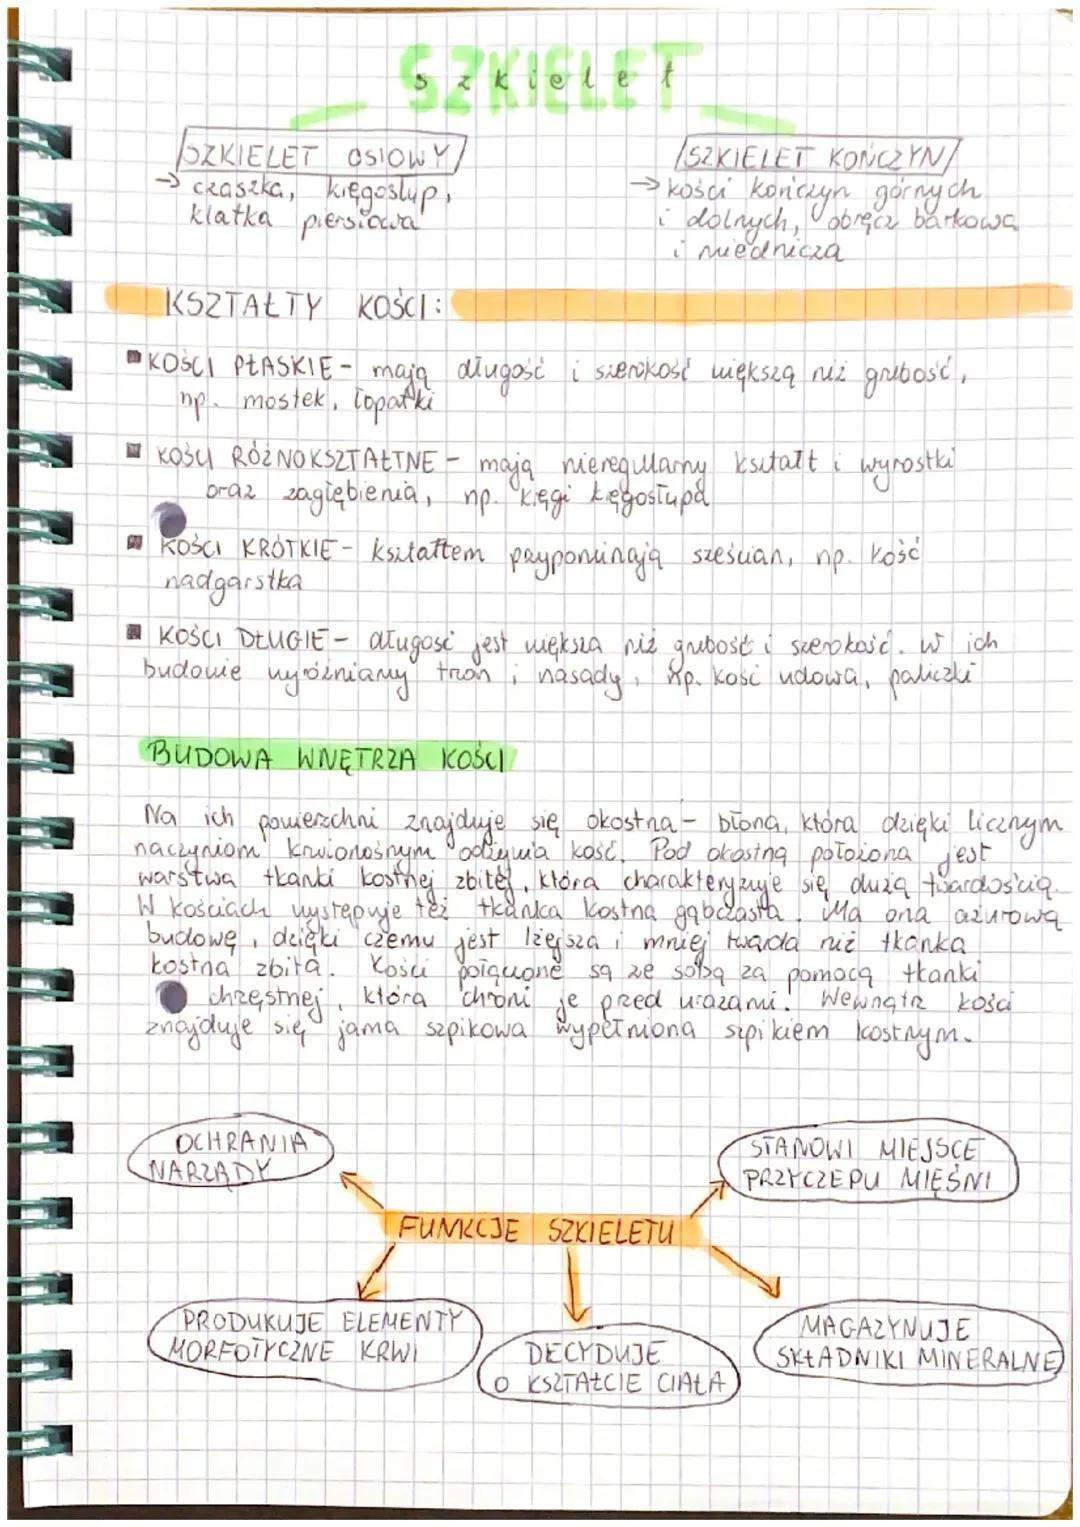 SZKIELET
szkielet
SZKIELET OSIOWY
→ czaszka, kręgosłup,
klatka piersiowa
SZKIELET KOŃCZYN
→ kości kończyn górnych
i dolnych, obręcz barkowa
i miednicza
KSZTAŁTY KOŚCI:
KOŚCI PŁASKIE - mają długość i szerokość większą niż grubość,
np. mostek, łopatki
KOŚCI RÓŻNOKSZTAŁTNE - mają nieregularny kształt i wyrostki
oraz zagłębienia, np. kręgi kręgosłupa
KOŚCI KRÓTKIE - kształtem przypominają sześcian, np. kość
nadgarstka
KOŚCI DŁUGIE - długość jest większa niż grubość i szerokość. W ich
budowie wyróżniamy trzon i nasady, np. kość udowa, paliczki
BUDOWA WNĘTRZA KOŚCI
Na ich powierzchni znajduje się okostna - błona, która dzięki licznym
naczyniom krwionośnym odżywia kość. Pod okostną położona jest
warstwa tkanki kostnej zbitej, która charakteryzuje się dużą twardością.
W kościach występuje też tkanka kostna gąbczasta. Ma ona ażurową
budowę, dzięki czemu jest lżejsza i mniej twarda niż tkanka
kostna zbita. Kości połączone są ze sobą za pomocą tkanki
chrzęstnej, która chroni je przed urazami. Wewnątrz kości
znajduje się jama szpikowa wypełniona szpikiem kostnym.
OCHRANIA
NARZĄDY
STANOWI MIEJSCE
PRZYCZEPU MIĘŚNI
FUNKCJE SZKIELETU
PRODUKUJE ELEMENTY
MORFOTYCZNE KRWI
DECYDUJE
O KSZTAŁCIE CIAŁA
MAGAZYNUJE
SKŁADNIKI MINERALNE